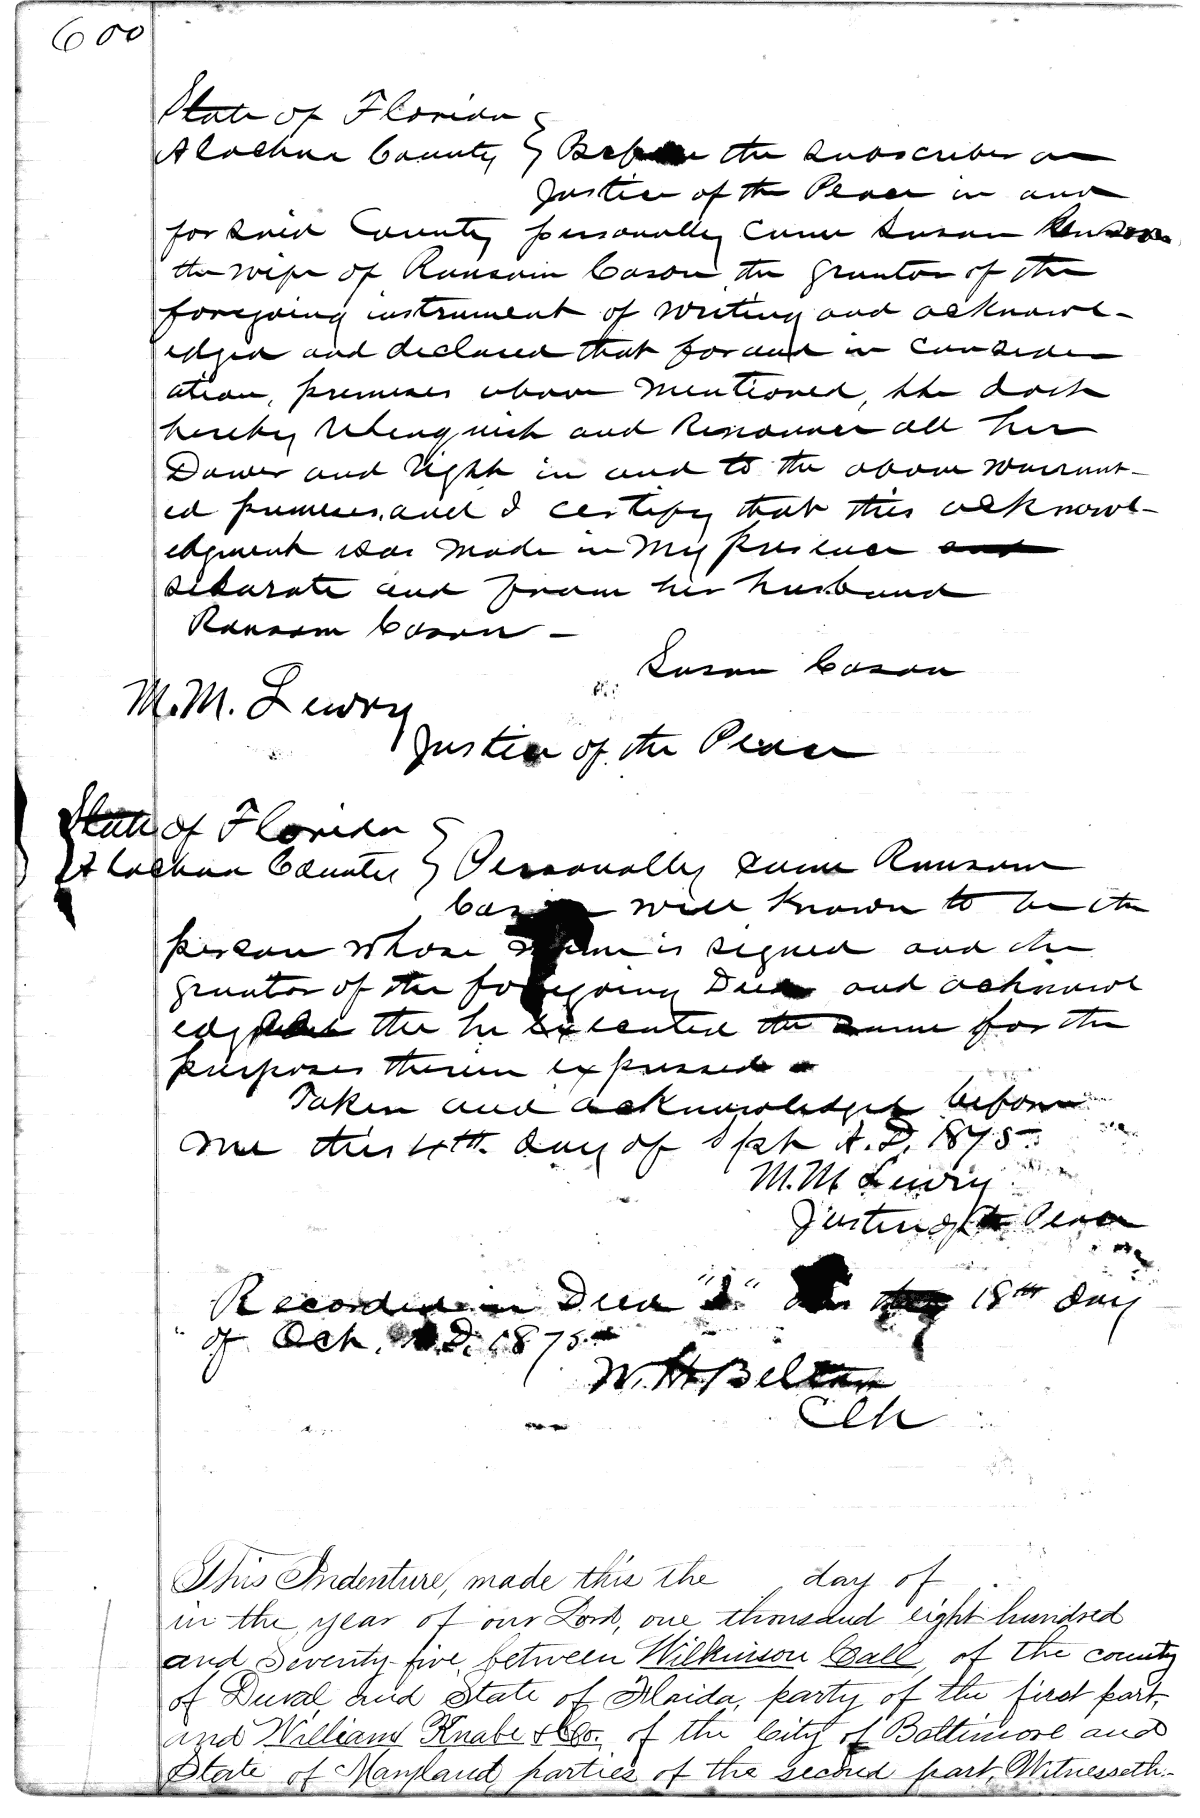 600
State of Florida }
Alachua County } Before the subscriber a
Justice of the Peace in and
for said County personally came Susan
the wife of Ransom Cason, the grantor of the
foregoing instrument of writing and acknowl-
edged and declared that for and in consider
ation, premises above mentioned, she doth
hereby relenquish and Renounce all her
Dower and right in and to the above warrant-
ed premises, and I certify that this acknowl-
edgment was made in my presence and
separate and from her husband
Ransom Cason -
Susan Cason
M. M. Lewry
Justice of the Peace
State of Florida }
Alachua County } Personally came Ransom
Cason well known to be the
person whose name is signed and the
grantor of the foregoing Deed and acknowl
the he executed the same for the
purposes therein expressed
Taken and acknowledged before
me this 4th day of Spt A.D. 1875
M. M Lewry
Justice of the Peace
Recorded in Deed "I" 18th day
of Oct. A.D. 1875
W. H Beltan
Clk
This Indenture, made this the day of
in the year of our Lord, one thousand eight hundred
and Seventy-five, between Wilkinson Call, of the county
of Duval and State of Floida, party of the first part,
and William Knabe & Co. of the City of Baltimore and
State of Maryland parties of the second part, Witnesseth-